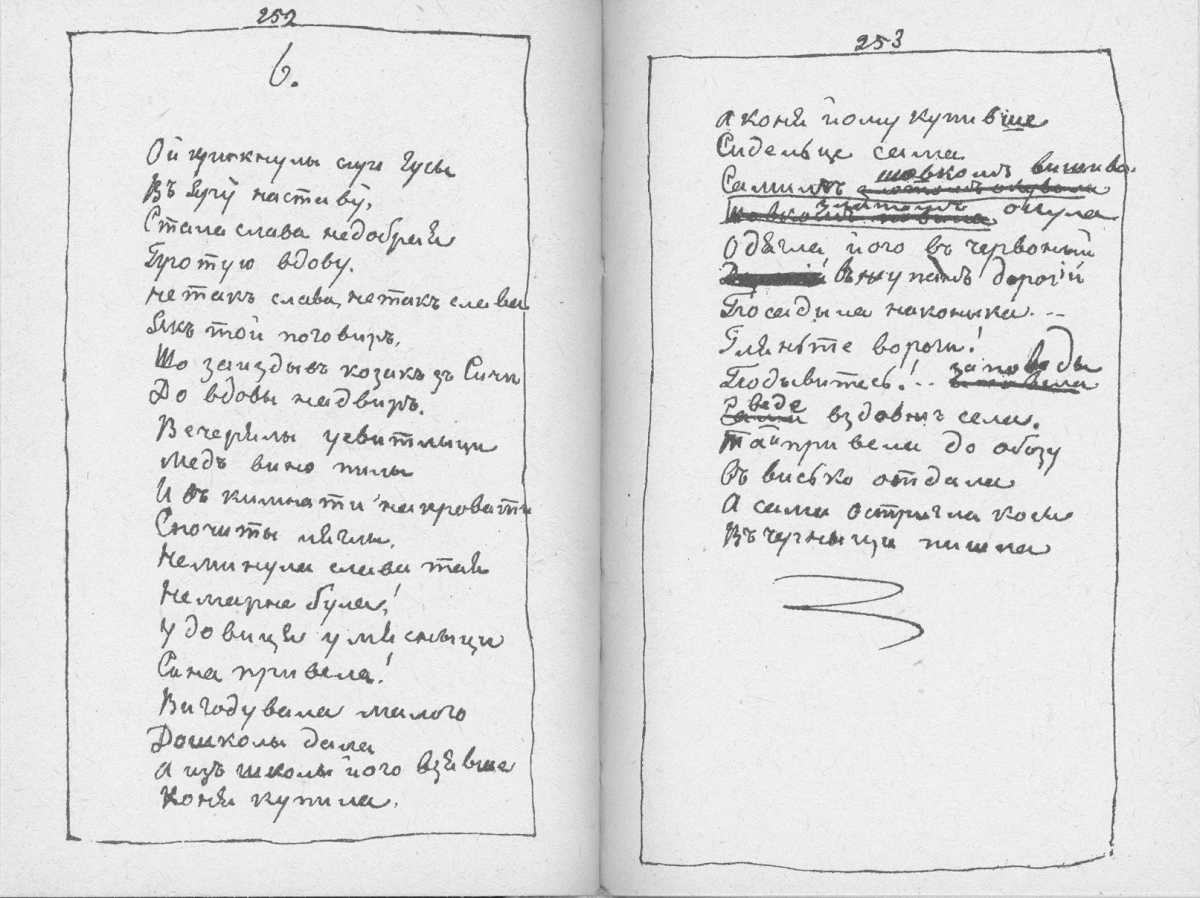 252
6.
Ой крикнулы сири гусы
Въ Яру на ставу,
Стала слава недобрая
Про тую вдову.
не такъ слава, не такъ слава
Якъ той поговиръ,
Що заиздывъ козакъ зъ Сичи
До вдовы на двиръ.
Вечерялы у свитлыци
медъ вино пилы
И въ кимнати на кровати
Спочиты ляглы.
Неминула слава тая
Немарне була!
У довиця у мясныци
Сина привела!
Вигодувала малого
Дошколы дала
А изъ школы його взявше
Коня купила.
253
А коня йому купивше
Сидельце сама
Самимъ шовкомъ вишива
златомъ окула
Одягла його въ червоный
въ жупанъ дорогий
Посадыла на коныка...
Гляньте вороги!
Подывитесь!..
веде вздовж села.
Тай привела до обозу
Въ висько отдала
А сама остригла косы
Въ черныци пишла